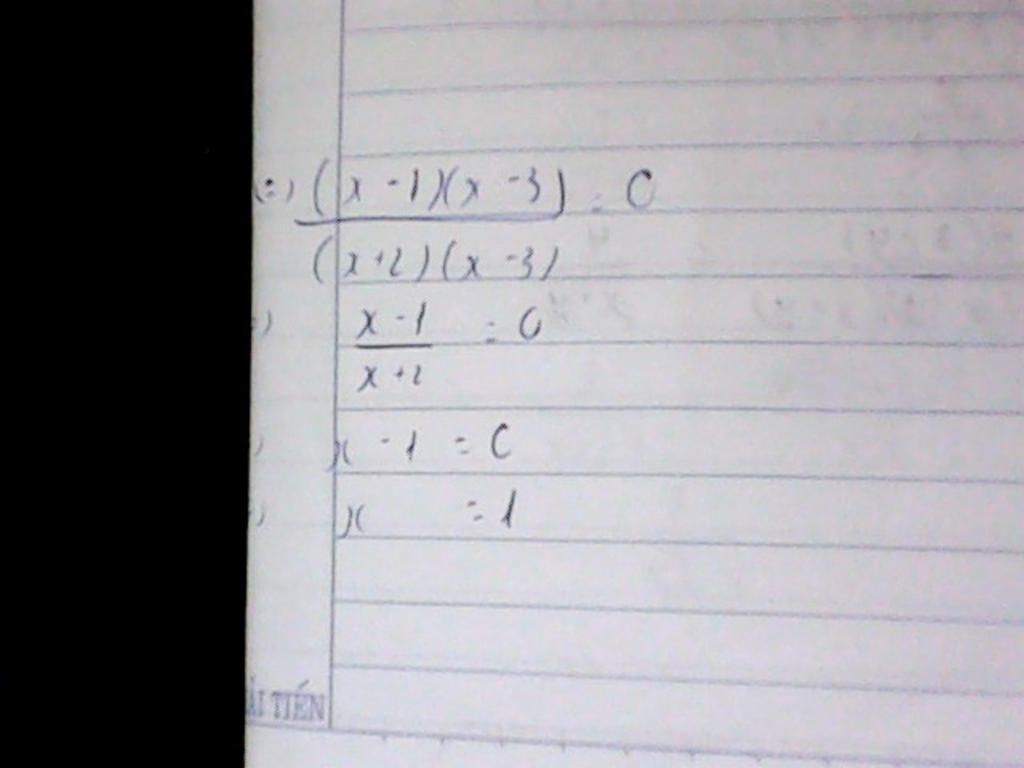 (=) (x - 1)(x - 3) = 0
(x + 2)(x - 3)
=) x - 1 = 0
x + 2
) x - 1 = 0
=) x = 1
ẢI TIẾN